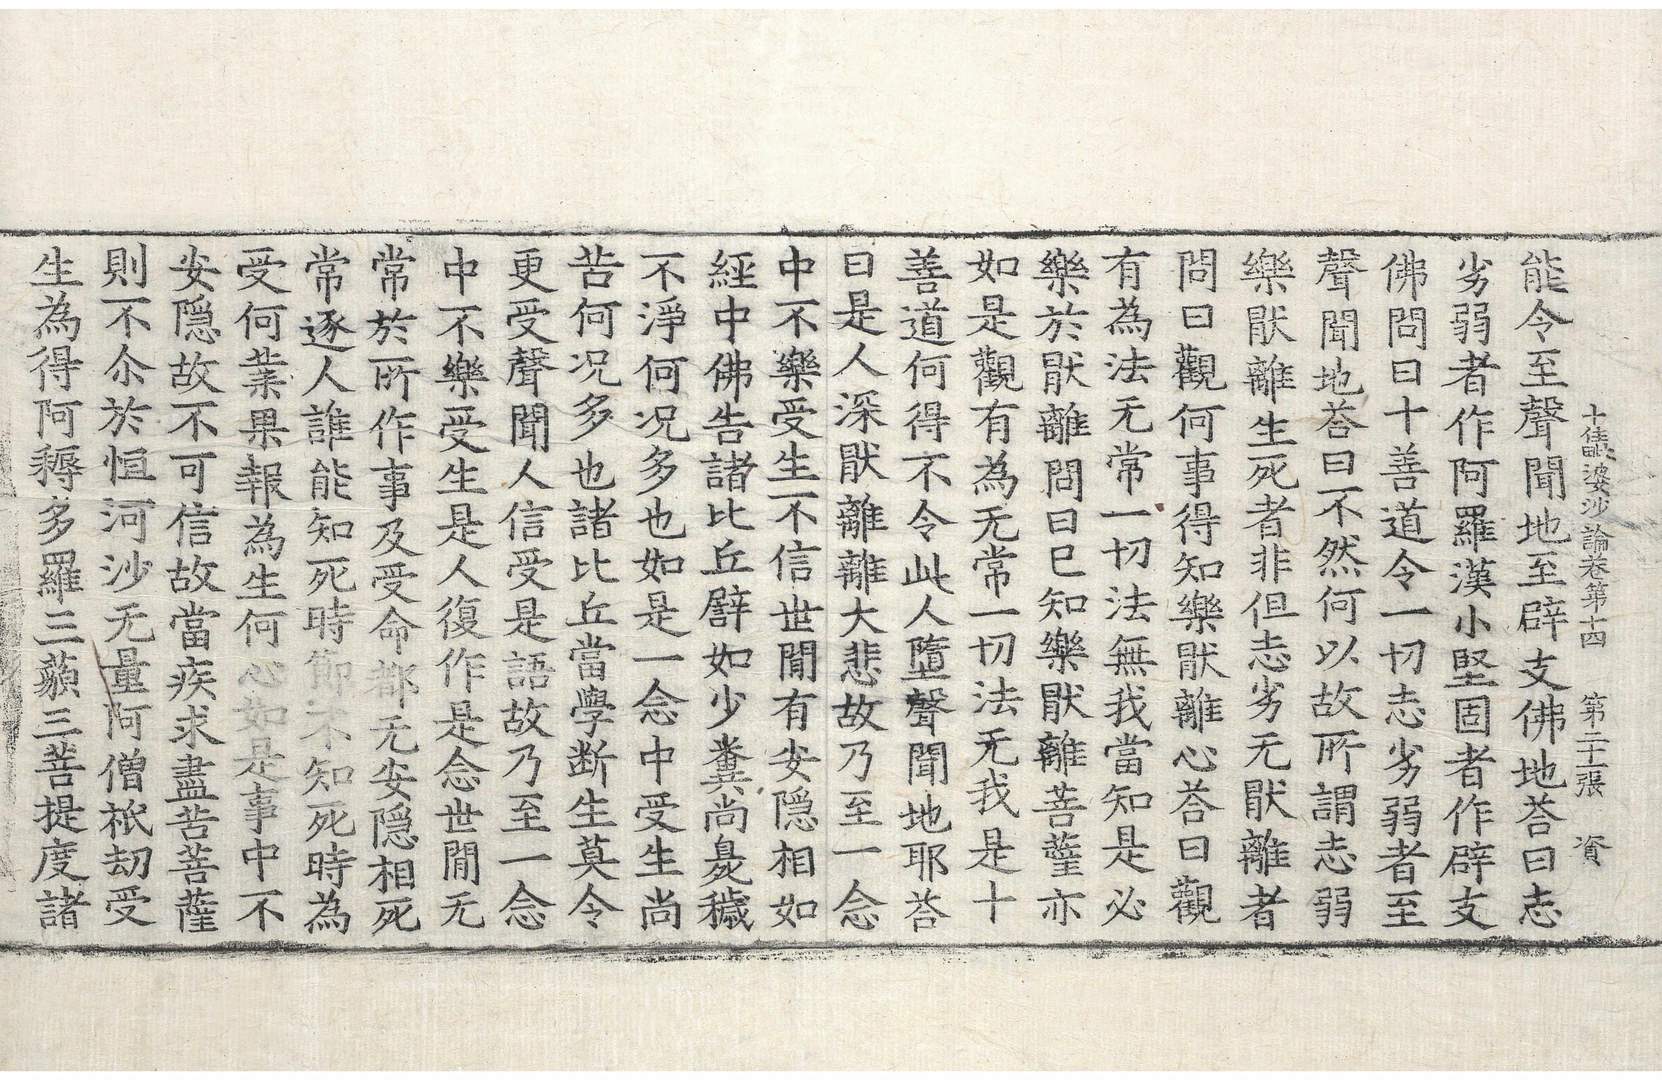 十住毗婆沙論卷第十四　第二十一張　資
能令至聲聞地至辟支佛地荅曰志
劣弱者作阿羅漢小堅固者作辟支
佛問曰十善道令一切志劣弱者至
聲聞地荅曰不然何以故所謂志弱
樂猒離生死者非但志劣无猒離者
問曰觀何事得知樂猒離心荅曰觀
有為法无常一切法無我當知是必
樂於猒離問曰已知樂猒離菩薩亦
如是觀有為无常一切法无我是十
善道何得不令此人墮聲聞地耶荅
曰是人深猒離離大悲故乃至一念
中不樂受生不信世閒有安隱相如
經中佛告諸比丘譬如少糞尚臭穢
不淨何況多也如是一念中受生尚
苦何況多也諸比丘當學斷生莫令
更受聲聞人信受是語故乃至一念
中不樂受生是人復作是念世閒无
常於所作事及受命都无安隱相死
常逐人誰能知死時節不知死時為
受何業果報為生何心如是事中不
安隱故不可信故當疾求盡苦菩薩
則不尒於恒河沙无量阿僧祇劫受
生為得阿耨多羅三藐三菩提度諸